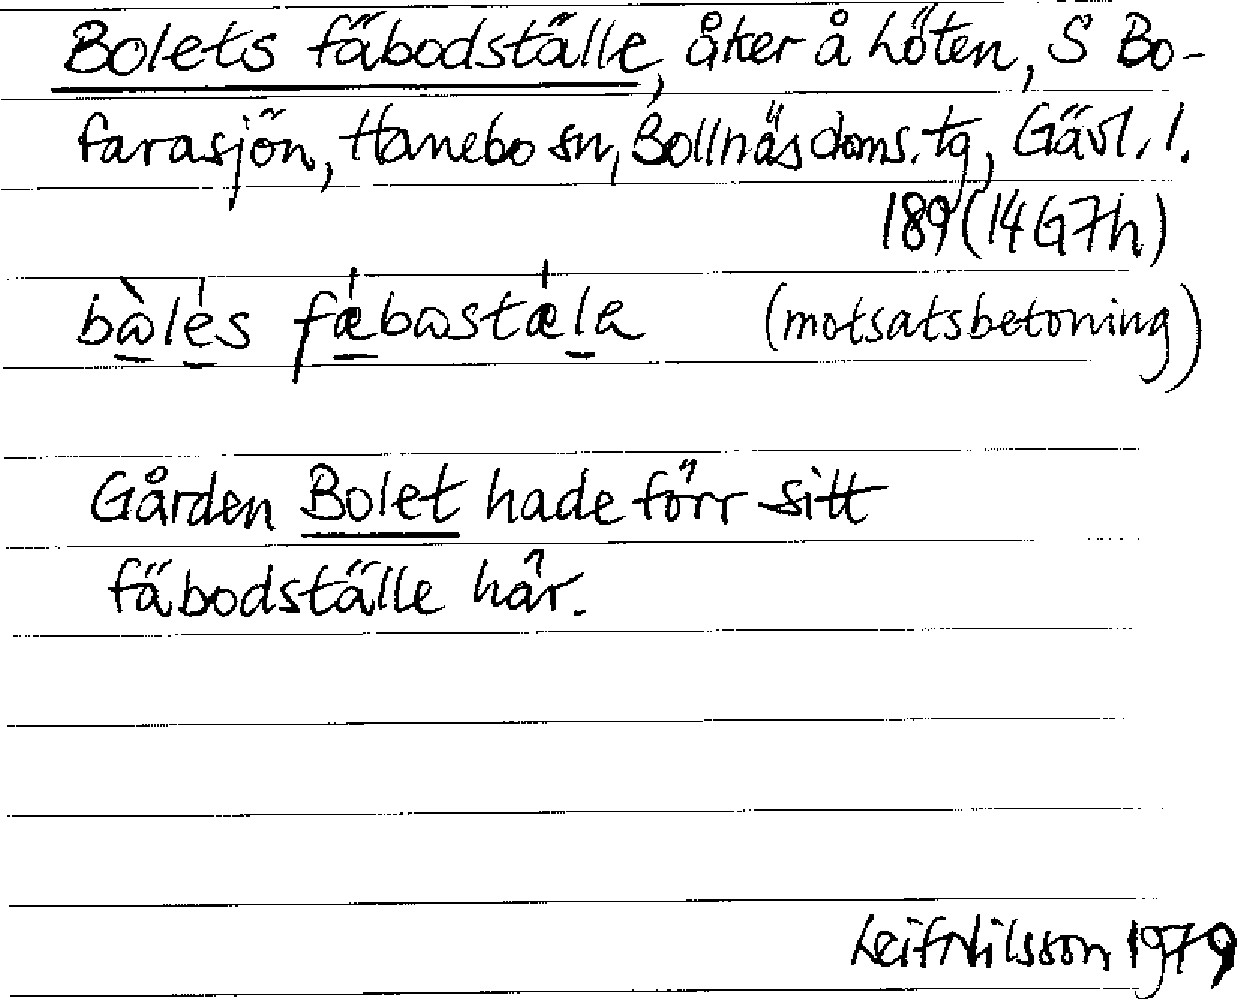 Bolets fäbodställe, åker å Löten, S Bo-
farasjön, Hanebo sn, Bollnäs doms.tg, Gävl.l.
189 (14G7h)
bὼlés fǽbωstǽla (motsatsbetoning)
Gården Bolet hade förr sitt
fäbodställe här.
Leif Nilsson 1979